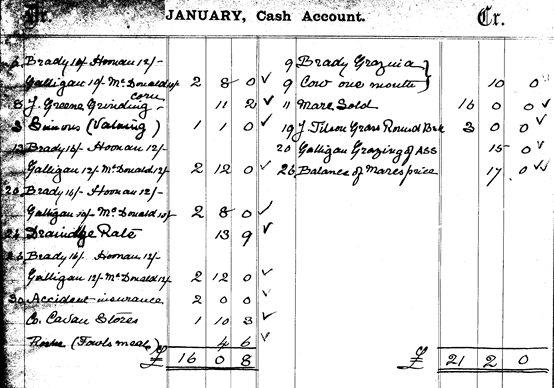 Dr. JANUARY, Cash Account. Cr.
6 Brady 16/- Hoonan 12/-
Galligan 10/- McDonald 10/- 2 8 0 ✓
8 J. Greene Grinding corn 11 2 ✓
3 Simons (Valuing) 1 1 0 ✓
13 Brady 16/- Hoonan 12/-
Galligan 12/- McDonald 12/- 2 12 0 ✓
20 Brady 16/- Hoonan 12/-
Galligan 10/- McDonald 10/- 2 8 0 ✓
24 Drainage Rate 13 9 ✓
Brady 16/- Hoonan 12/-
Galligan 12/- McDonald 12/- 2 12 0 ✓
30 Accident insurance 2 0 0 ✓
Co. Cavan Stores 1 10 3 ✓
(Fowls meal) 4 6 ✓
£ 16 0 8
9 Brady Grazing
9 Cow one month 10 0
11 Mare Sold 16 0 0 ✓
19 J. Tilson Grass Round 3 0 0 ✓
20 Galligan Grazing of Ass 15 0 ✓
26 Balance of Mares price 17 0 ✓✓
£ 21 2 0